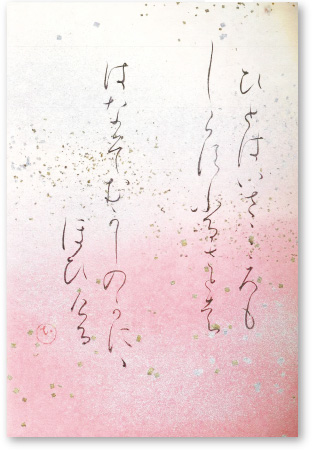 ひとはいさこゝろも
しらずふるさとは
はなぞむかしのかに
ほひける